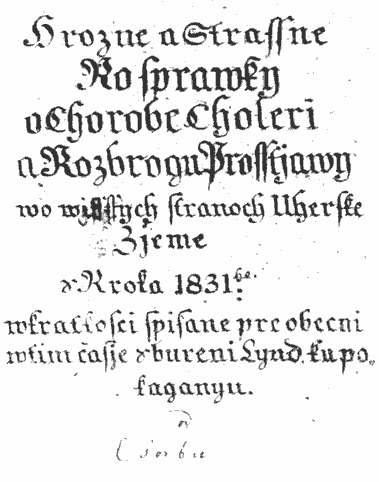 Hrozne a Strassne
Rosprawky
o Chorobe Choleri
a Rozbrogu Prosstjawy
wo wissstych stranoch Uherske
Zjeme
z Rroka 1831ho.
wkratkosci spisane pre obecni
wtim časje zbureni Lynd. ku po-
kaganyu.
od
Čorbu